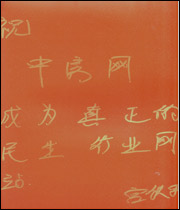 祝
中房网
成为真正的
民生行业网
站